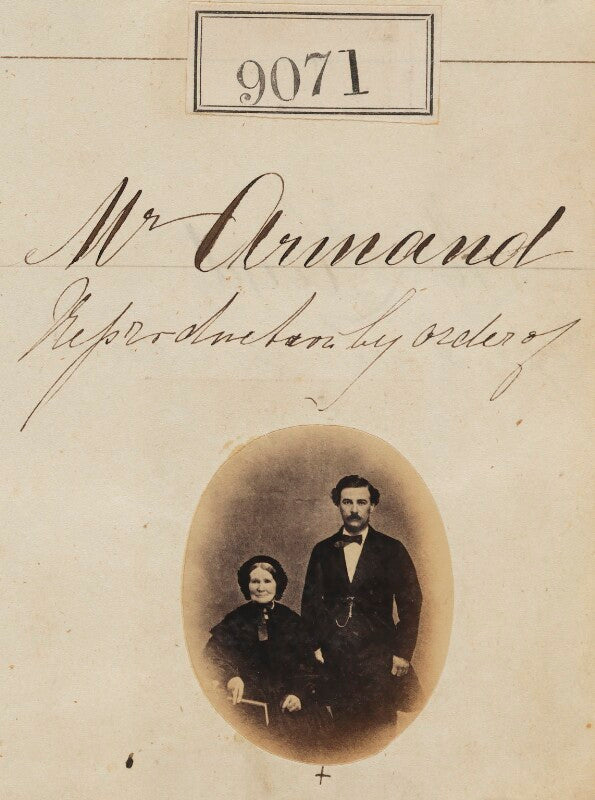 9071
Mr Armand
Reproduction by order of